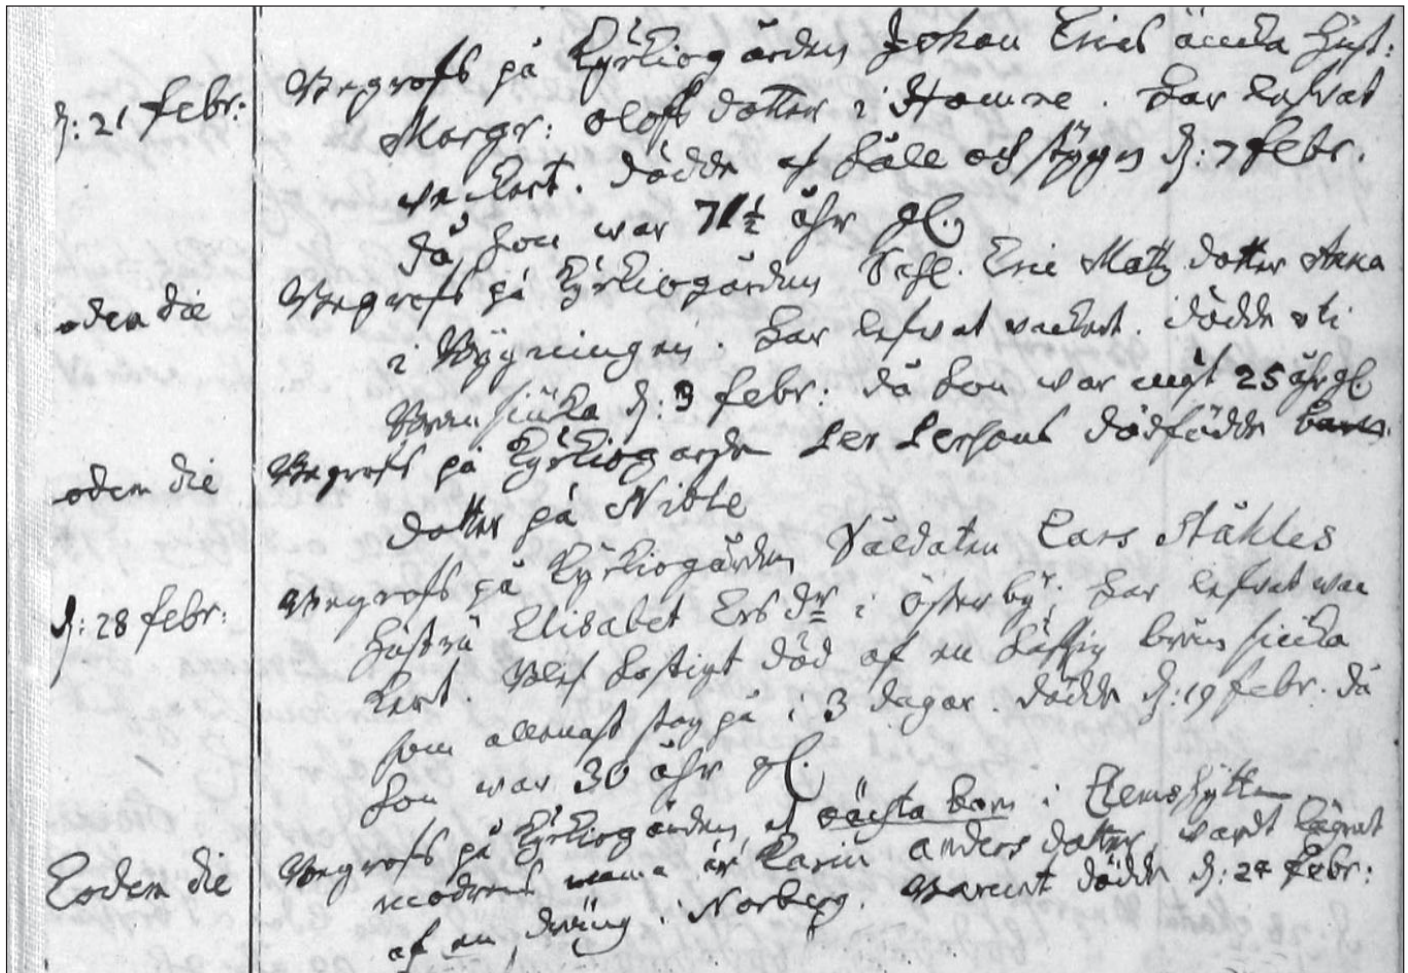 d: 21 febr: Begrofs på Kyrkiogården Johan Erics äncka Hust:
Margr: Olofs dotter i Hamre. Har lefwat
wackert. dödde af håll och stÿgn d: 7 febr.
då hon war 71½ åhr gl.
eodem die Begrofs på Kyrkiogården Sahl. Eric Matz dotter Anna
i Bÿgningen. Har lefwat wackert. dödde uti
Brensiuka d: 3 febr: då hon war 25 åhr gl
eodem die Begrofs på Kyrkiogården Per Persons dödfödde barn
dotter på Nibble
d: 28 febr: Begrofs på Kyrkiogården Såldaten Lars Ståhles
Hustru Elisabet Ers dr i Österbÿ; Har lefwat wac
kert. Blef hastigt död af en häftig bren siuka
som allenast stog på i 3 dagar. dödde d: 19 febr. då
hon war 30 åhr gl.
Eodem die Begrofs på Kyrkiogården et oächta barn i Klemshÿttan
modrens namn är Karin Anders dotter, wardt lägrat
af en dräng i Norberg. Barnet dödde d: 24 Febr: